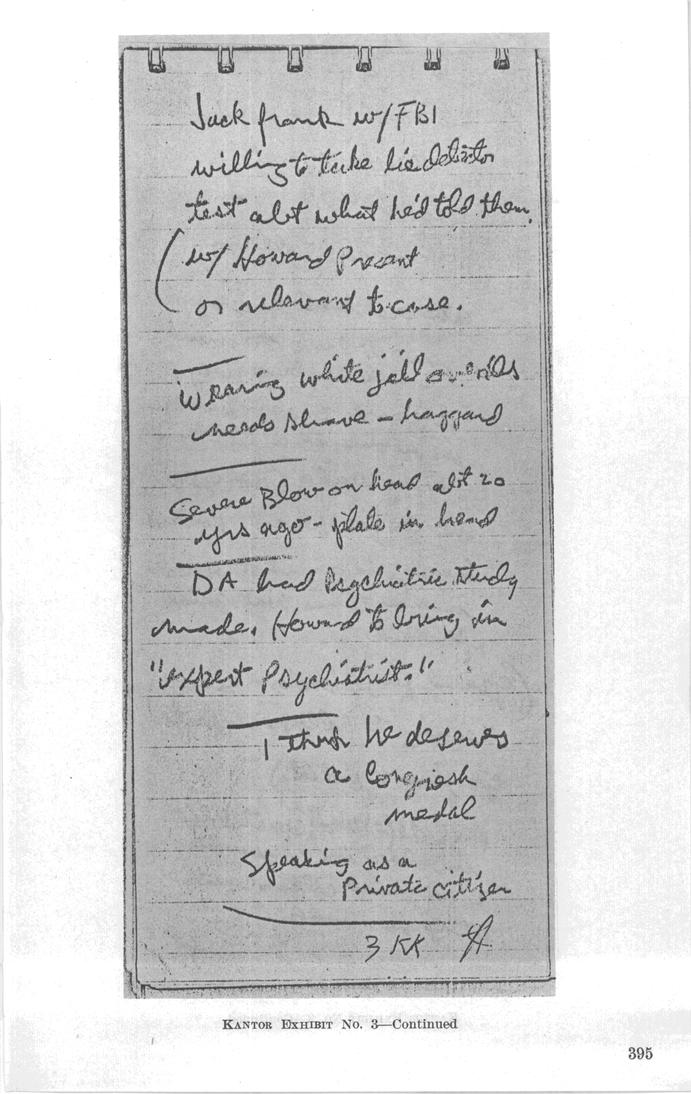 Jack frank w/FBI
willing to take lie detector
test abt what he'd told them.
(w/ Howard Present
or relevant to case.
Wearing white jail overalls
needs shave - haggard
Severe Blow on head abt 20
yrs ago - plate in head
DA had Psychiatric study
made. Howard to bring in
"expert Psychiatrist."
I think he deserves
a
medal
Speaking as a
Private citizen
3 KK
KANTOR EXHIBIT No. 3—Continued
395